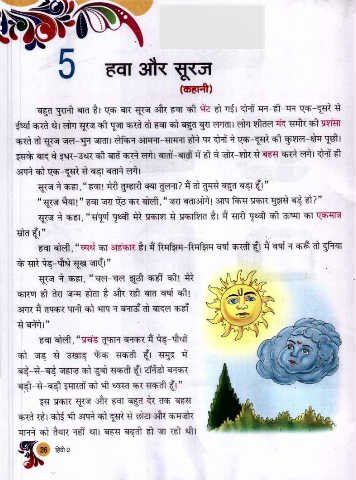 5
हवा और सूरज
(कहानी)
बहुत पुरानी बात है। एक बार सूरज और हवा की भेंट हो गई। दोनों मन-ही-मन एक-दूसरे से
ईर्ष्या करते थे। लोग सूरज की पूजा करते तो हवा को बहुत बुरा लगता। लोग शीतल मंद समीर की प्रशंसा
करते तो सूरज जल-भुन जाता। लेकिन आमना-सामना होने पर दोनों ने एक-दूसरे की कुशल-क्षेम पूछी।
इसके बाद वे इधर-उधर की बातें करने लगे। बातों-बातों में ही वे जोर-शोर से बहस करने लगे। दोनों ही
अपने को एक-दूसरे से बड़ा बताने लगे।
सूरज ने कहा, “हवा! मेरी तुम्हारी क्या तुलना? मैं तो तुमसे बहुत बड़ा हूँ।”
“सूरज भैया!” हवा जरा ऐंठ कर बोली, “जरा बताओगे। आप किस प्रकार मुझसे बड़े हो?”
सूरज ने कहा, “संपूर्ण पृथ्वी मेरे प्रकाश से प्रकाशित है। मैं सारी पृथ्वी को ऊष्मा का एकमात्र
स्रोत हूँ।”
हवा बोली, “व्यर्थ का अहंकार है। मैं रिमझिम-रिमझिम वर्षा करती हूँ। मैं वर्षा न करूँ तो दुनिया
के सारे पेड़-पौधे सूख जाएँ।”
सूरज ने कहा, “चल-चल झूठी कहीं की! मेरे
कारण ही तेरा जन्म होता है और रही बात वर्षा की!
अगर मैं तपकर पानी को भाप न बनाऊँ तो बादल कहाँ
से बनेंगे।”
हवा बोली, “प्रचंड तूफान बनकर मैं पेड़-पौधों
को जड़ से उखाड़ फेंक सकती हूँ। समुद्र में
बड़े-से-बड़े जहाज को डुबो सकती हूँ। टॉर्नेडो बनकर
बड़ी-से-बड़ी इमारतों को भी ध्वस्त कर सकती हूँ।”
इस प्रकार सूरज और हवा बहुत देर तक बहस
करते रहे। कोई भी अपने को दूसरे से छोटा और कमजोर
मानने को तैयार नहीं था। बहस बढ़ती ही जा रही थी।
26 हिंदी-2